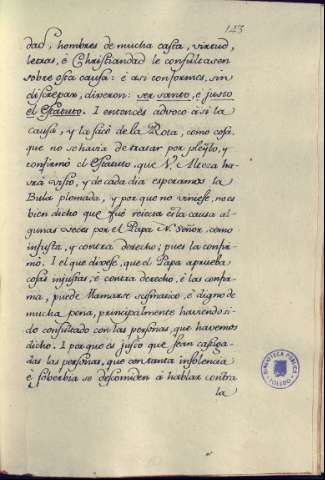 123
dad, hombres de mucha casta, virtud,
letras, è Christiandad le consultasen
sobre esta causa: è asi conformes, sin
discrepar, dixeron: ser santo, è justo
el Estatuto. I entonces advocò á si la
causa, y la sacò de la Rota, como cosa
que no se havia de tratar por pleyto, y
confirmò el Estatuto, que V. Alteza ha-
vrá visto, y de cada dia esperamos la
Bula plomada, y por que no viniese, no es
bien dicho que fué reiecta esta causa al-
gunas veces por el Papa N. Señor, como
injusta, y contra derecho; pues la confir-
mò. I el que dixese, que el Papa aprueba
cosas injustas, è contra derecho, è las confir-
ma, puede llamarse scismatico, è digno de
mucha pena, principalmente haviendo si-
do consultado con las personas, que havemos
dicho. I por que es justo que sean castiga-
das las personas, que con tanta insolencia
è soberbia se descomiden á hablar contra
la
BIBLIOTECA PUBLICA
TOLEDO